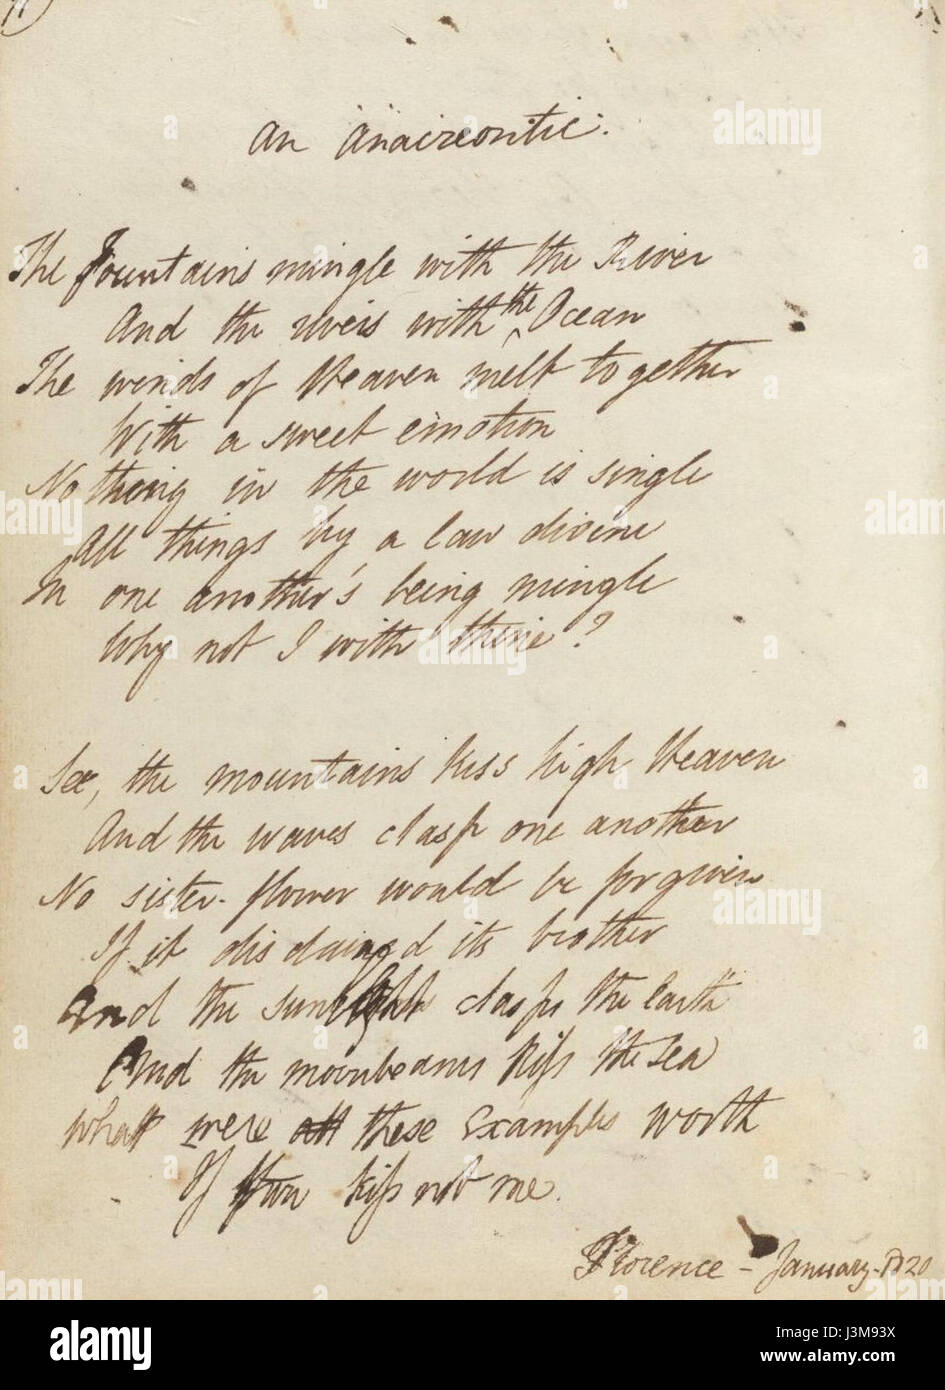 An Anacreontic.
The Fountains mingle with the River
And the rivers with the Ocean
The winds of Heaven melt together
With a sweet emotion
Nothing in the world is single
All things by a law divine
In one another's being mingle
Why not I with thine?
See, the mountains kiss high Heaven
And the waves clasp one another
No sister-flower would be forgiven
If it disdained its brother
And the sunlight clasps the Earth
And the moonbeams kiss the Sea
What were all these examples worth
If thou kiss not me.
Florence - January. 1820
alamy
alamy stock photo
J3M93X
www.alamy.com